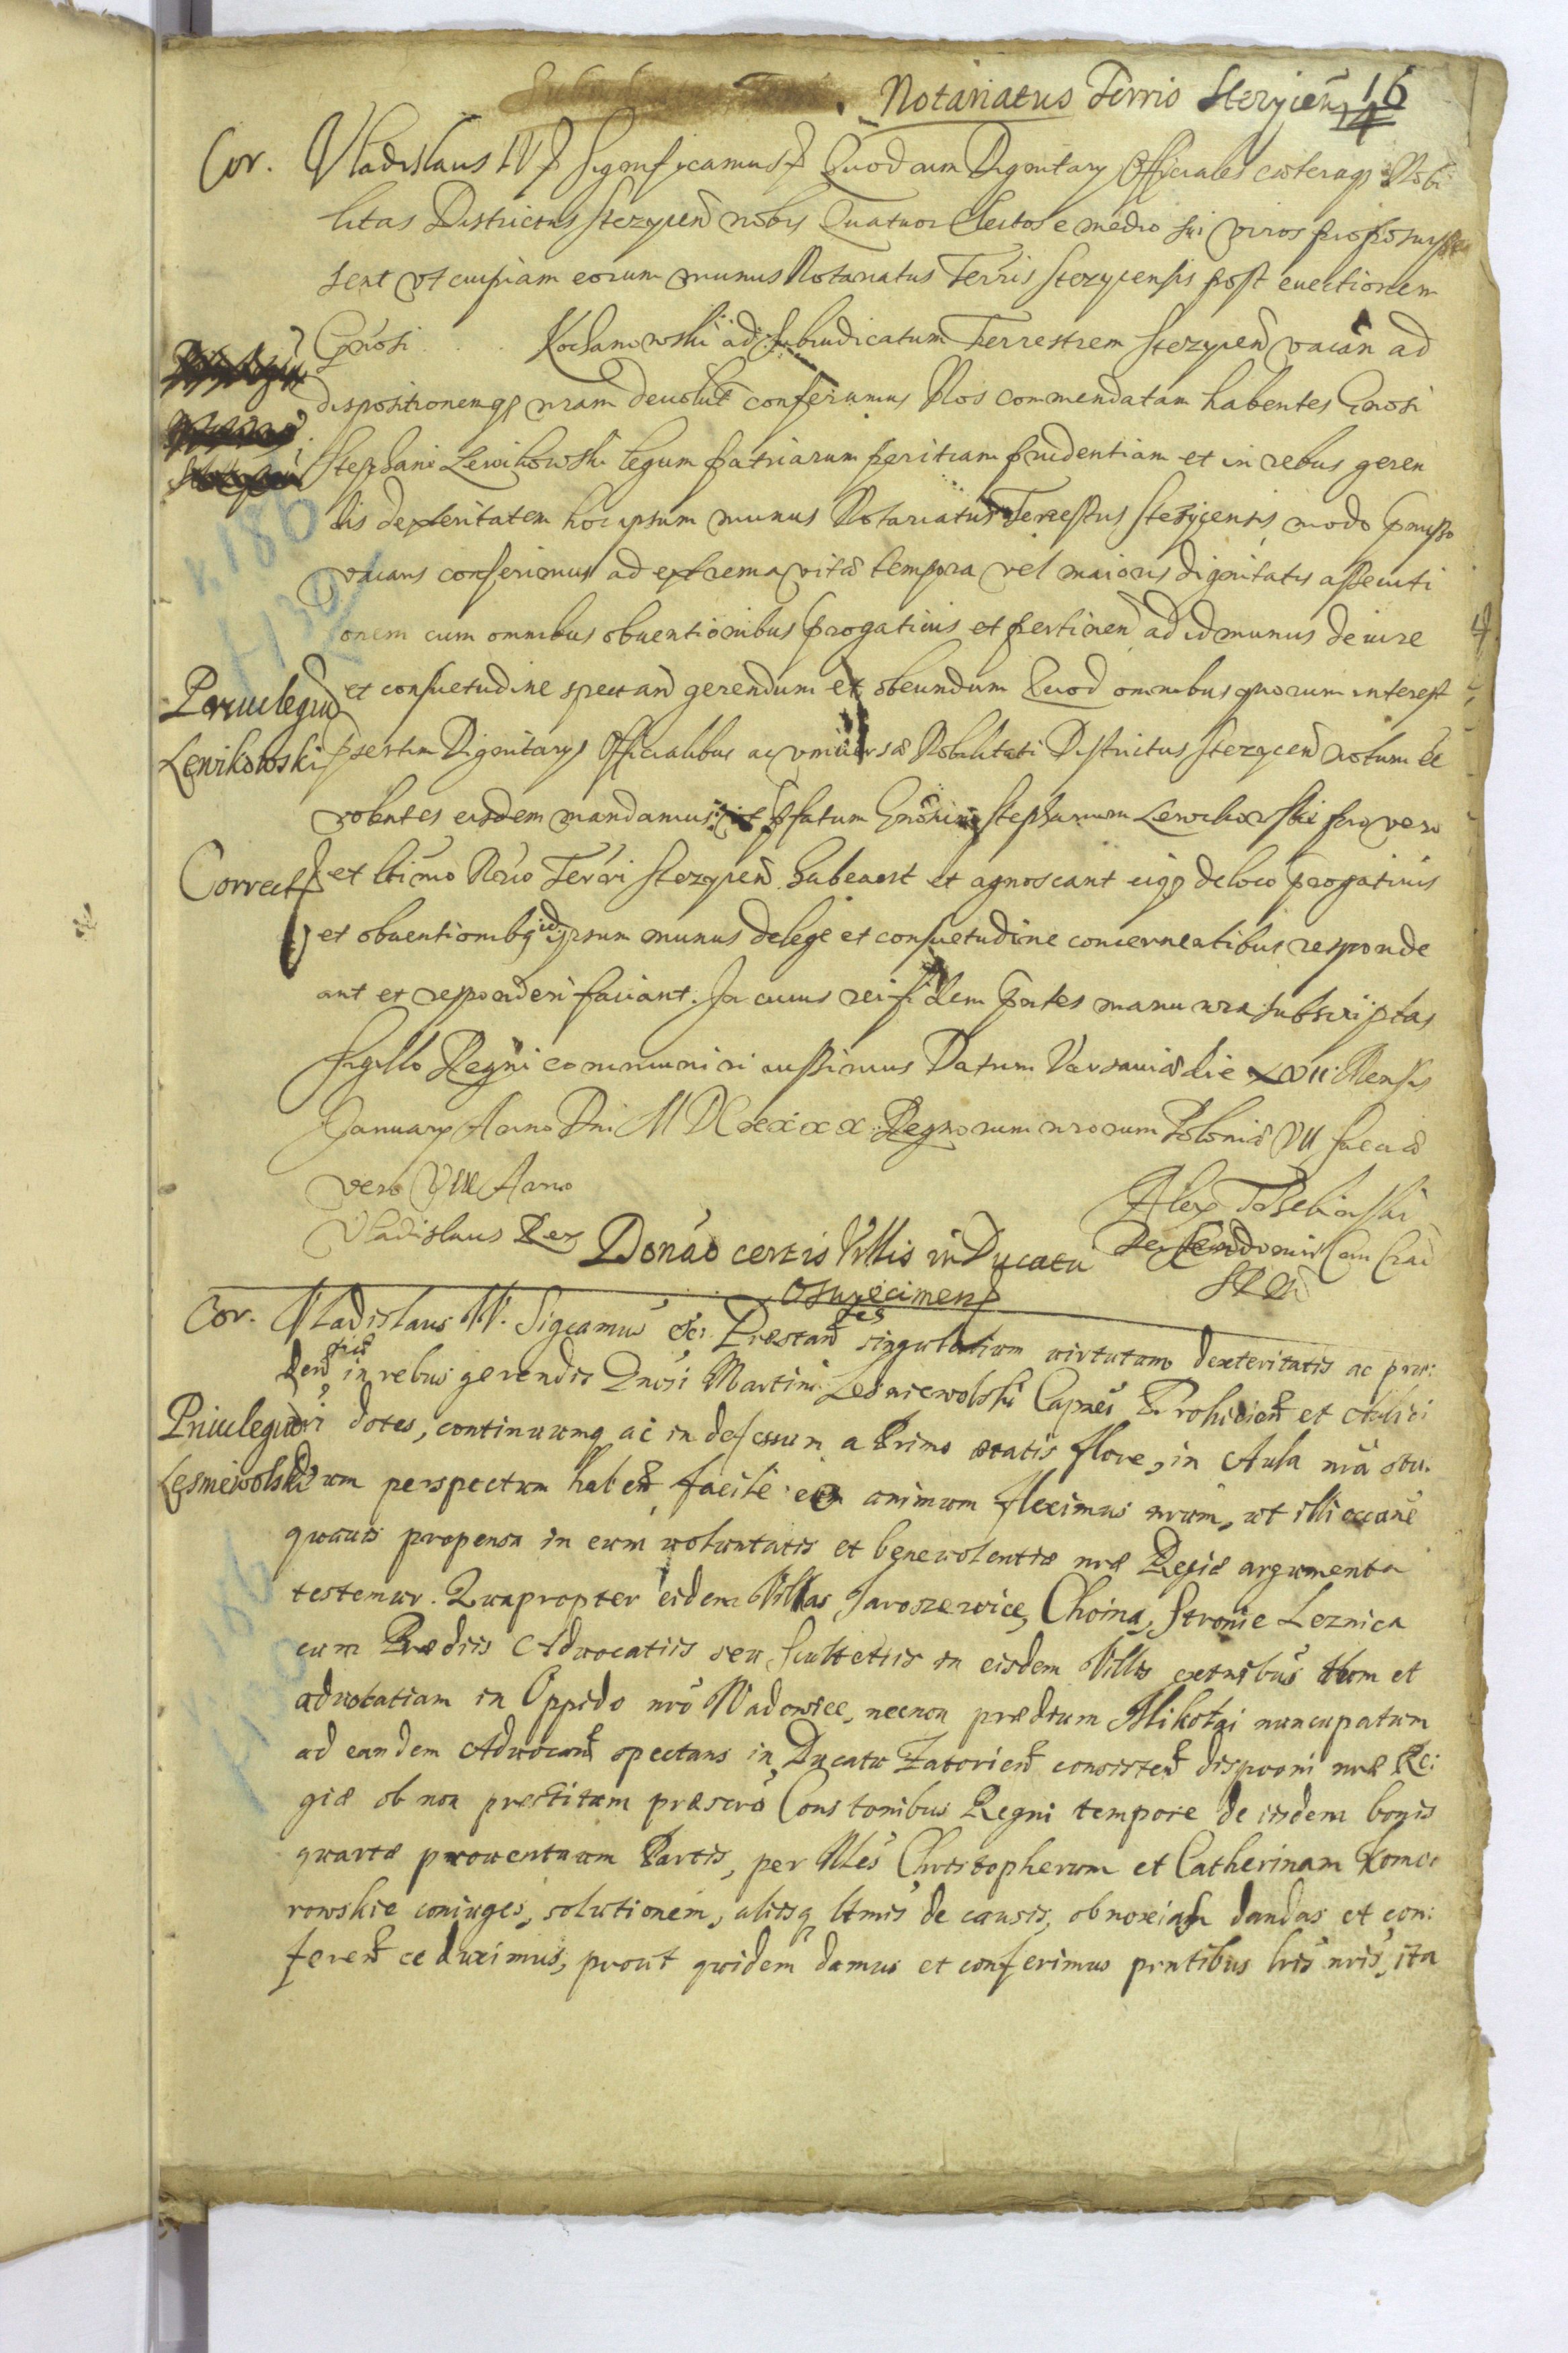 Notariatus Terris Stezycen 16
14
Cor. Vladislaus IV Significamus Quod cum Dignitary Officiales caeteraq Nobi
litas Districtus Stezycen nobis Quatuor Electos e medio sui viros proposuis
sent vt cuipiam eorum munus Notariatus Terris Stezycensis post euectionem
Gnosi . . Kochanowski ad Subiudicatum Terrestrem Stezycen vacan ad
dispositionemq nram deuolut conferamus Nos commendatam habentes Gnosi
Stephani Lewikowski legum patriarum peritiam prudentiam et in rebus geren
dis dexteritatem hoc ipsum munus Notariatus Terrestris Stezycensis modo pmisso
vacans conferimus ad extrema vitae tempora vel maioris dignitatis assecuti
onem cum omnibus obuentionibus progatiuis et pertinen ad id munus de iure
Priuilegium et consuetudine spectan gerendum et obeundum Quod omnibus quorum interest
Lewikowski psertim Dignitarys Officialibus ac vniuersae Nobilitati Districtus Stezycen notum ee
volentes eisdem mandamus vt pfatum Gnosum Stephanum Lewikowski pro vero
Correct et ltimo Nrio Terri Stezycen habeant et agnoscant eiq de loco progatiuis
et obuentionibq id ipsum munus de lege et consuetudine concernentibus responde
ant et responderi faciant. In cuius rei fidem pntes manu nra subscriptas
Sigillo Regni communiri iussimus Datum Varsauiae die XVII Mensis
January Anno Dni MDCxxxx Regnorum nrorum Poloniae VII Sueciae
vero VIII Anno
Vladislaus Rex Alex Trzebinski
Donao certis Villis in Ducatu
Osuiecimen
Cor. Vladislaus IV. Sigcamus &c. Praestan tes singularium virtutum dexteritatis ac pru:
den tiae in rebus gerendis Gnosi Martini Lesniewolski Capnei Drohicien et Aulici
Priuilegium nri dotes, continuumq ac indefessum a Primo aetatis flore, in Aula nra stu:
Lesniewolski dium perspectum haben, facile eo animum fleximus nrum, ut illi occane
quauis propensa in eum voluntatis et beneuolentiae nrae Regiae argumenta
testemur. Quapropter eidem Villas Jaroszewice, Choina, Stronie Leznica
cum Praediis Aduocatiis seu Scultetiis in eisdem Villis extnibus tum et
aduocatiam in Oppido nro Wadowice, necnon praedium Mikołai nuncupatum
ad eandem Aduocam spectans in Ducatu Zatorien consisten disponi nrae Re:
giae ob non praestitam praescro Constonibus Regni tempore de iisdem bonis
quartae prouentuum Partis, per Mles Christopherum et Catherinam Komo:
rowskie coniuges, solutionem, aliisq ltmis de causis, obnoxiam dandas et con:
feren ee duximus, prout quidem damus et conferimus pntibus lris nris, ita